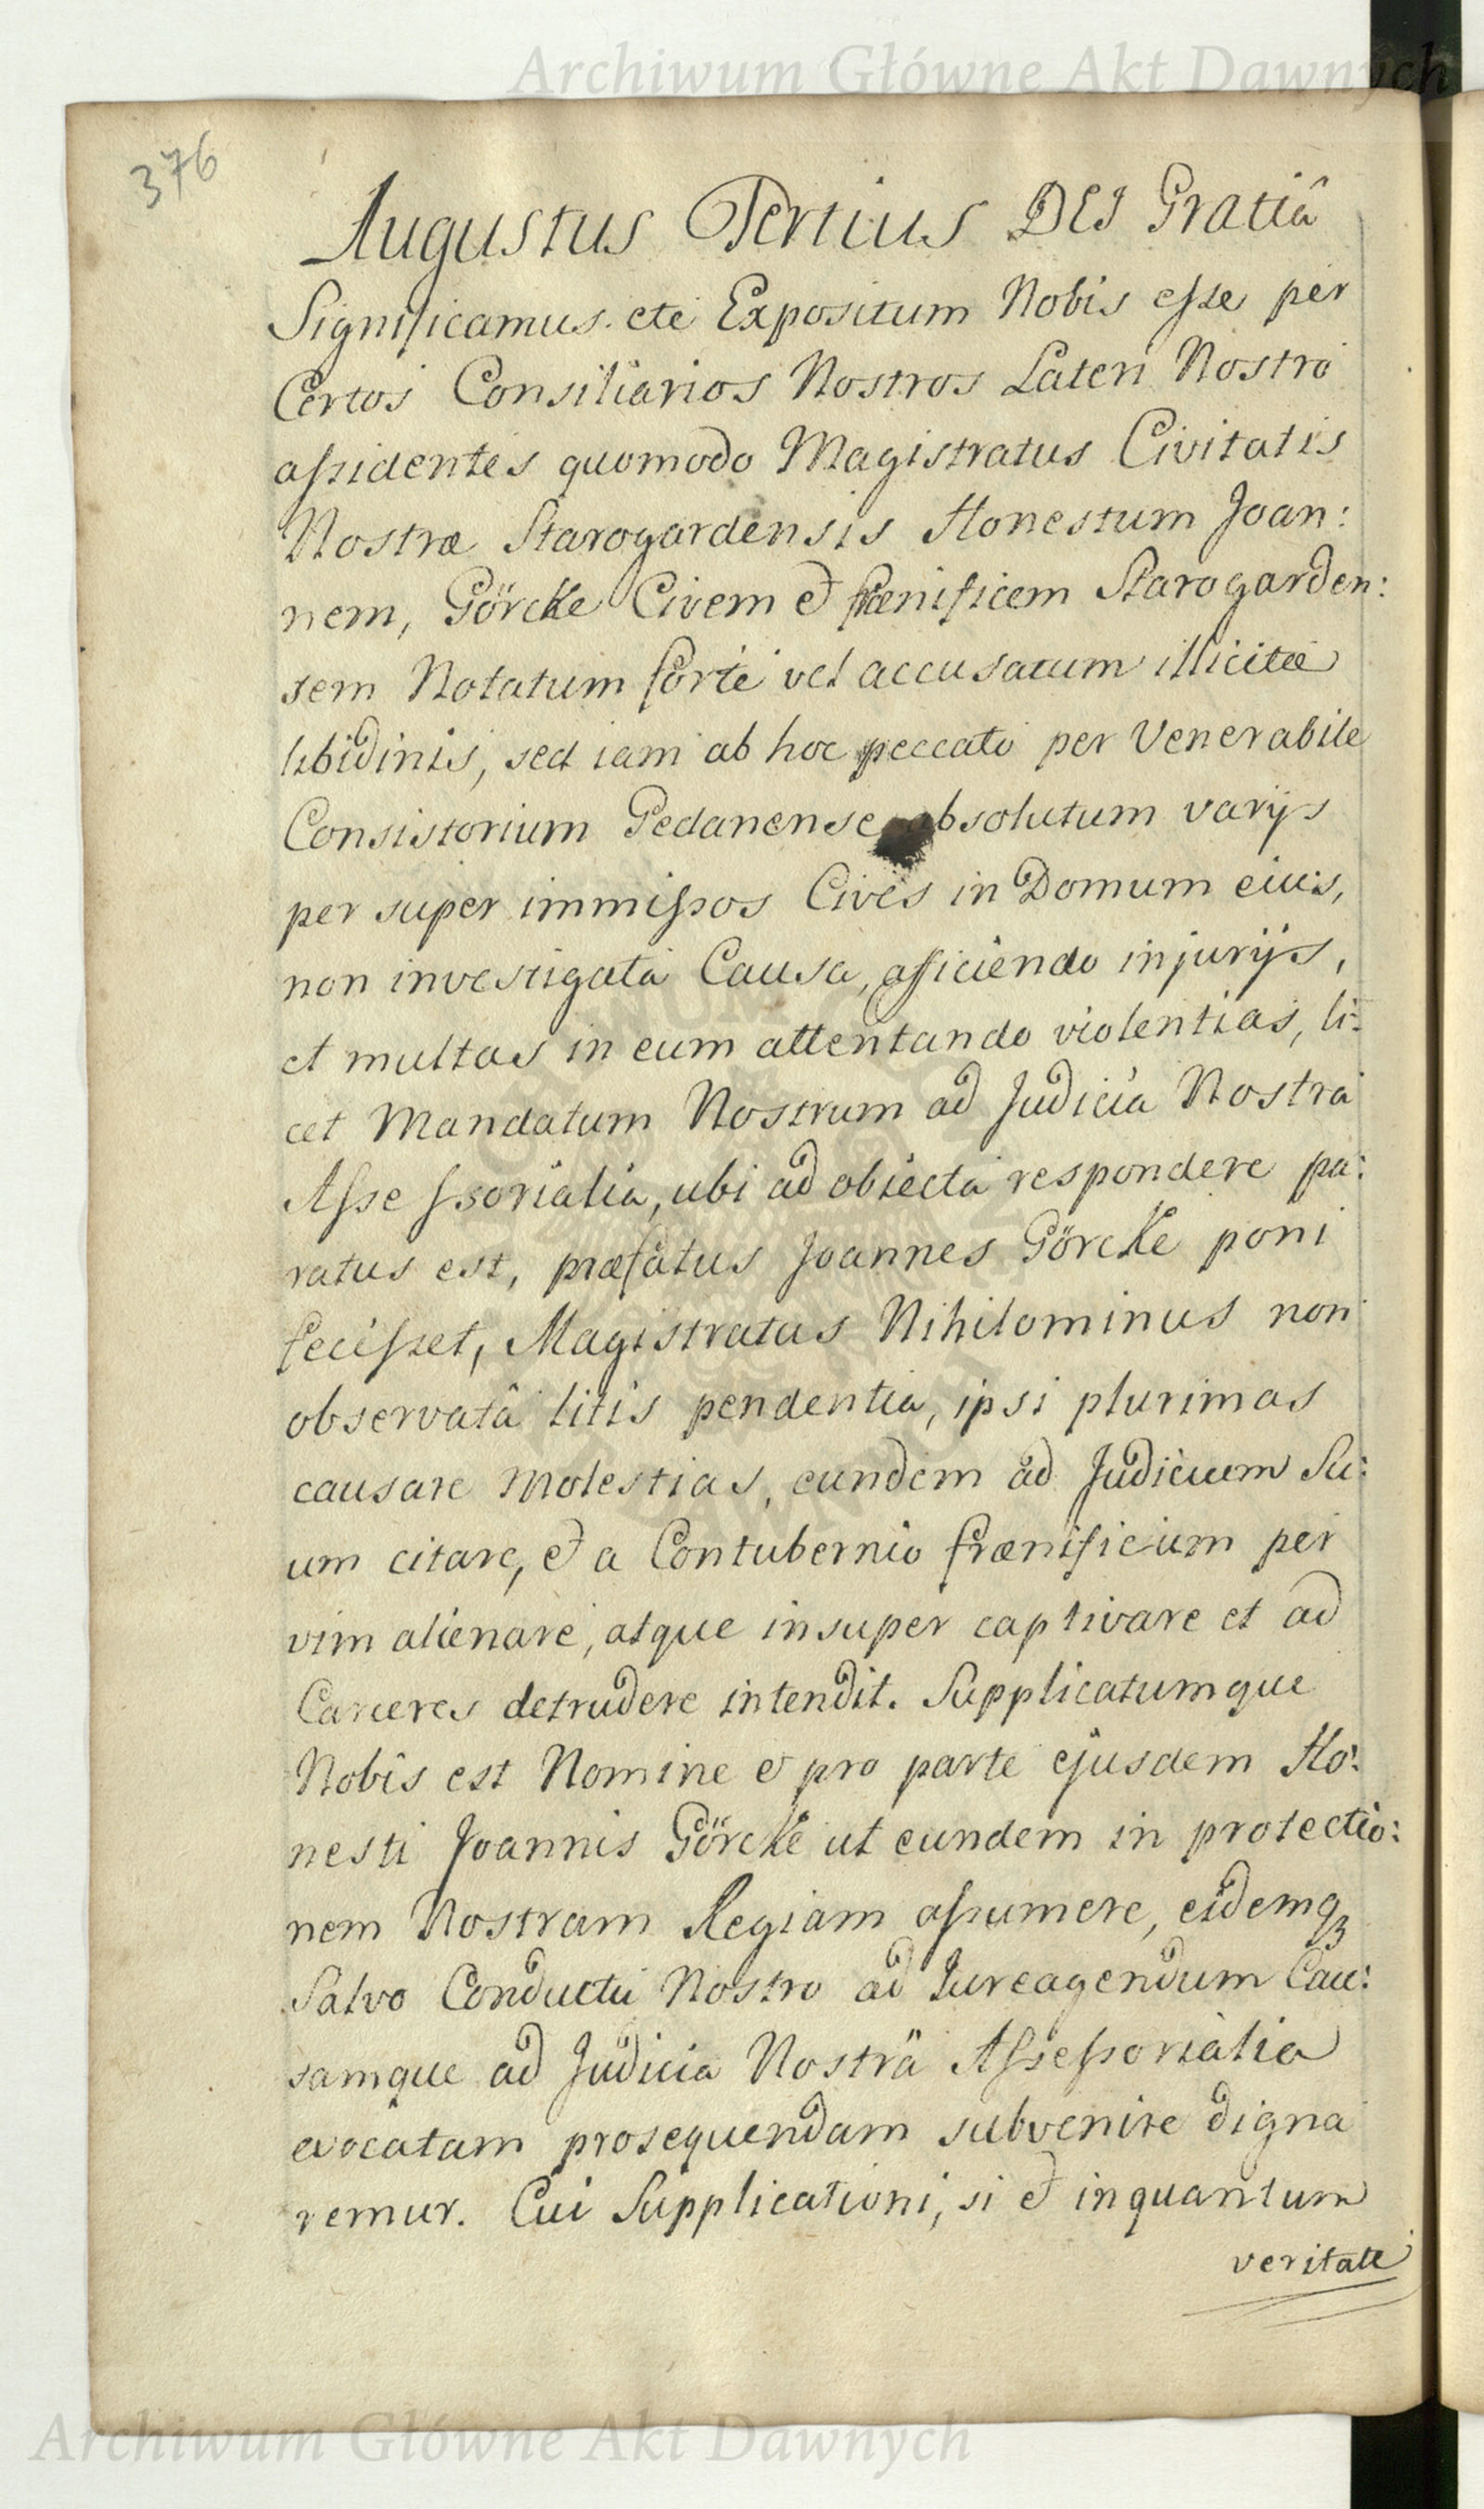 Archiwum Główne Akt Dawnych
376
Augustus Tertius DEI Gratiâ
Significamus. etc Expositum Nobis esse per
Certos Consiliarios Nostros Lateri Nostro
assidentes quomodo Magistratus Civitatis
Nostræ Starogardensis Honestum Joan:
nem, Görcke Civem et frænificem Starogarden:
sem Notatum forte vel accusatum illicitæ
libidinis, sed iam ab hoc peccato per Venerabile
Consistorium Gedanense absolutum varijs
per super immissos Cives in Domum eius,
non investigata Causa, afficiendo injurijs,
et multas in eum attentando violentias, li:
cet Mandatum Nostrum ad Judicia Nostra
Assessorialia, ubi ad obiecta respondere pa:
ratus est, præfatus Joannes Görcke poni
fecisset, Magistratus Nihilominus non
observatâ litis pendentia, ipsi plurimas
causare molestias, eundem ad Judicium Su:
um citare, et a Contubernio frænificium per
vim alienare, atque insuper captivare et ad
Carceres detrudere intendit. Supplicatumque
Nobis est Nomine et pro parte ejusdem Ho:
nesti Joannis Görcke ut eundem in protectio:
nem Nostram Regiam assumere, eidemq3
Salvo Conductu Nostro ad Iureagendum Cau:
samque ad Judicia Nostra Assessorialia
evocatam prosequendam subvenire digna
remur. Cui Supplicationi, si et inquantum
veritate
Archiwum Główne Akt Dawnych